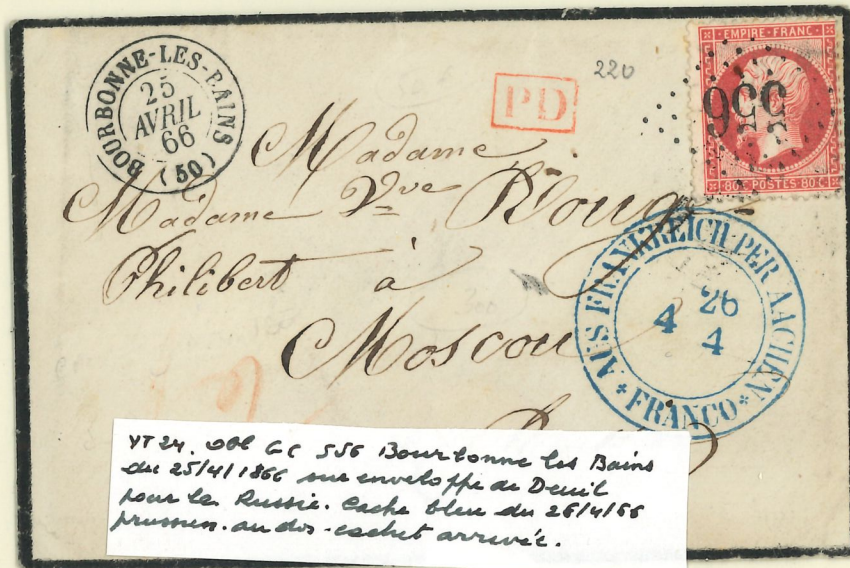 BOURBONNE-LES-BAINS
25
AVRIL
66
(50)
220
PD
EMPIRE·FRANC
556
80C POSTES 80C
Madame
Madame Vve Roug
Philibert à
Moscou
AUS FRANKREICH PER AACHEN
26
4 4
*FRANCO*
YT 24. obl GC 556 Bourbonne les Bains
du 25/4/1866 sur enveloppe de Deuil
pour la Russie. Cache bleu du 26/4/66
prussen. au dos - cachet arrivée.